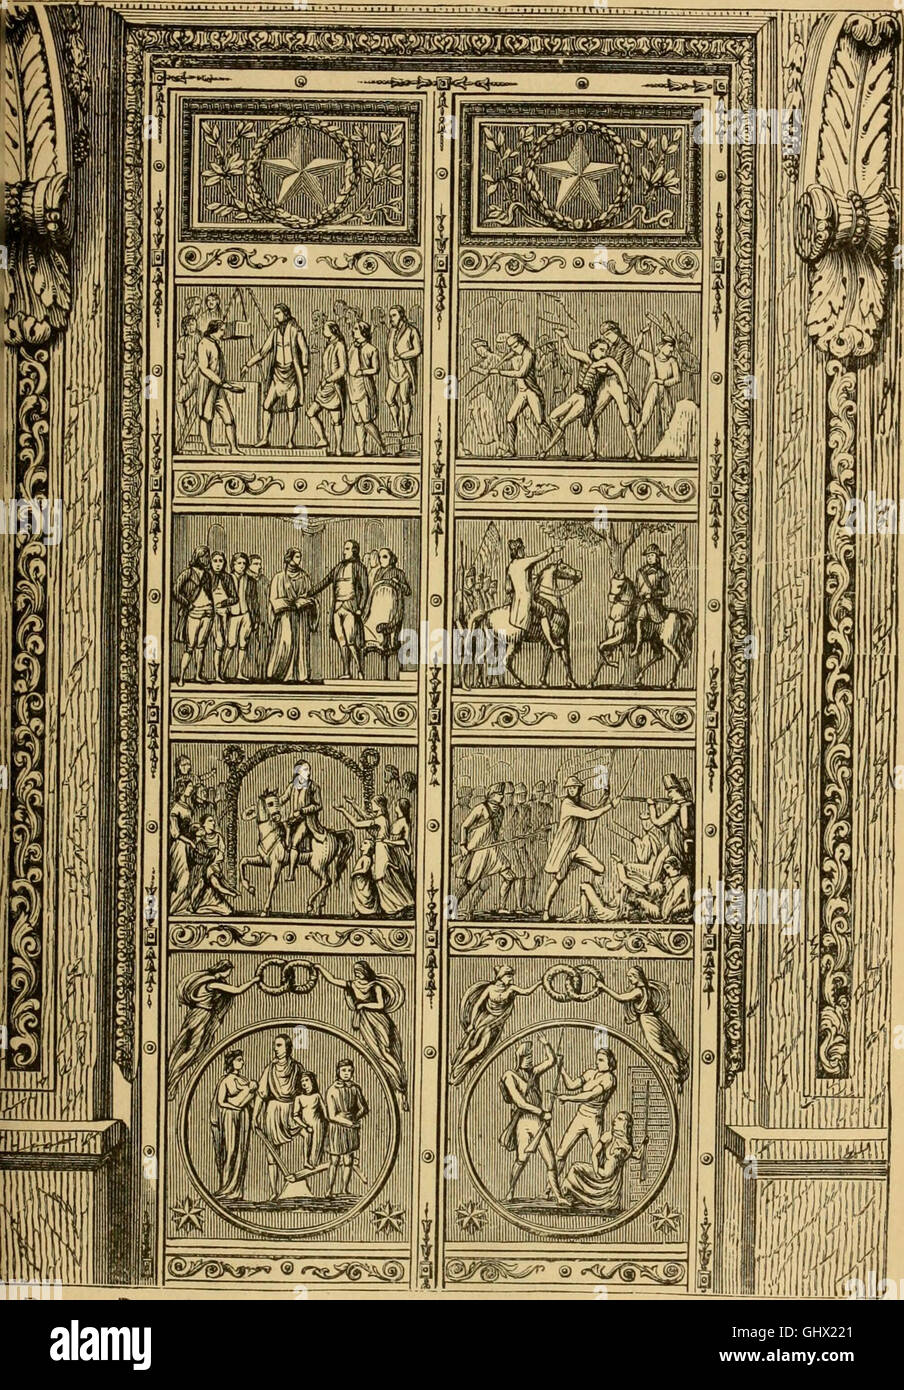 alamy
alamy
alamy
Image ID: GHX221
www.alamy.com